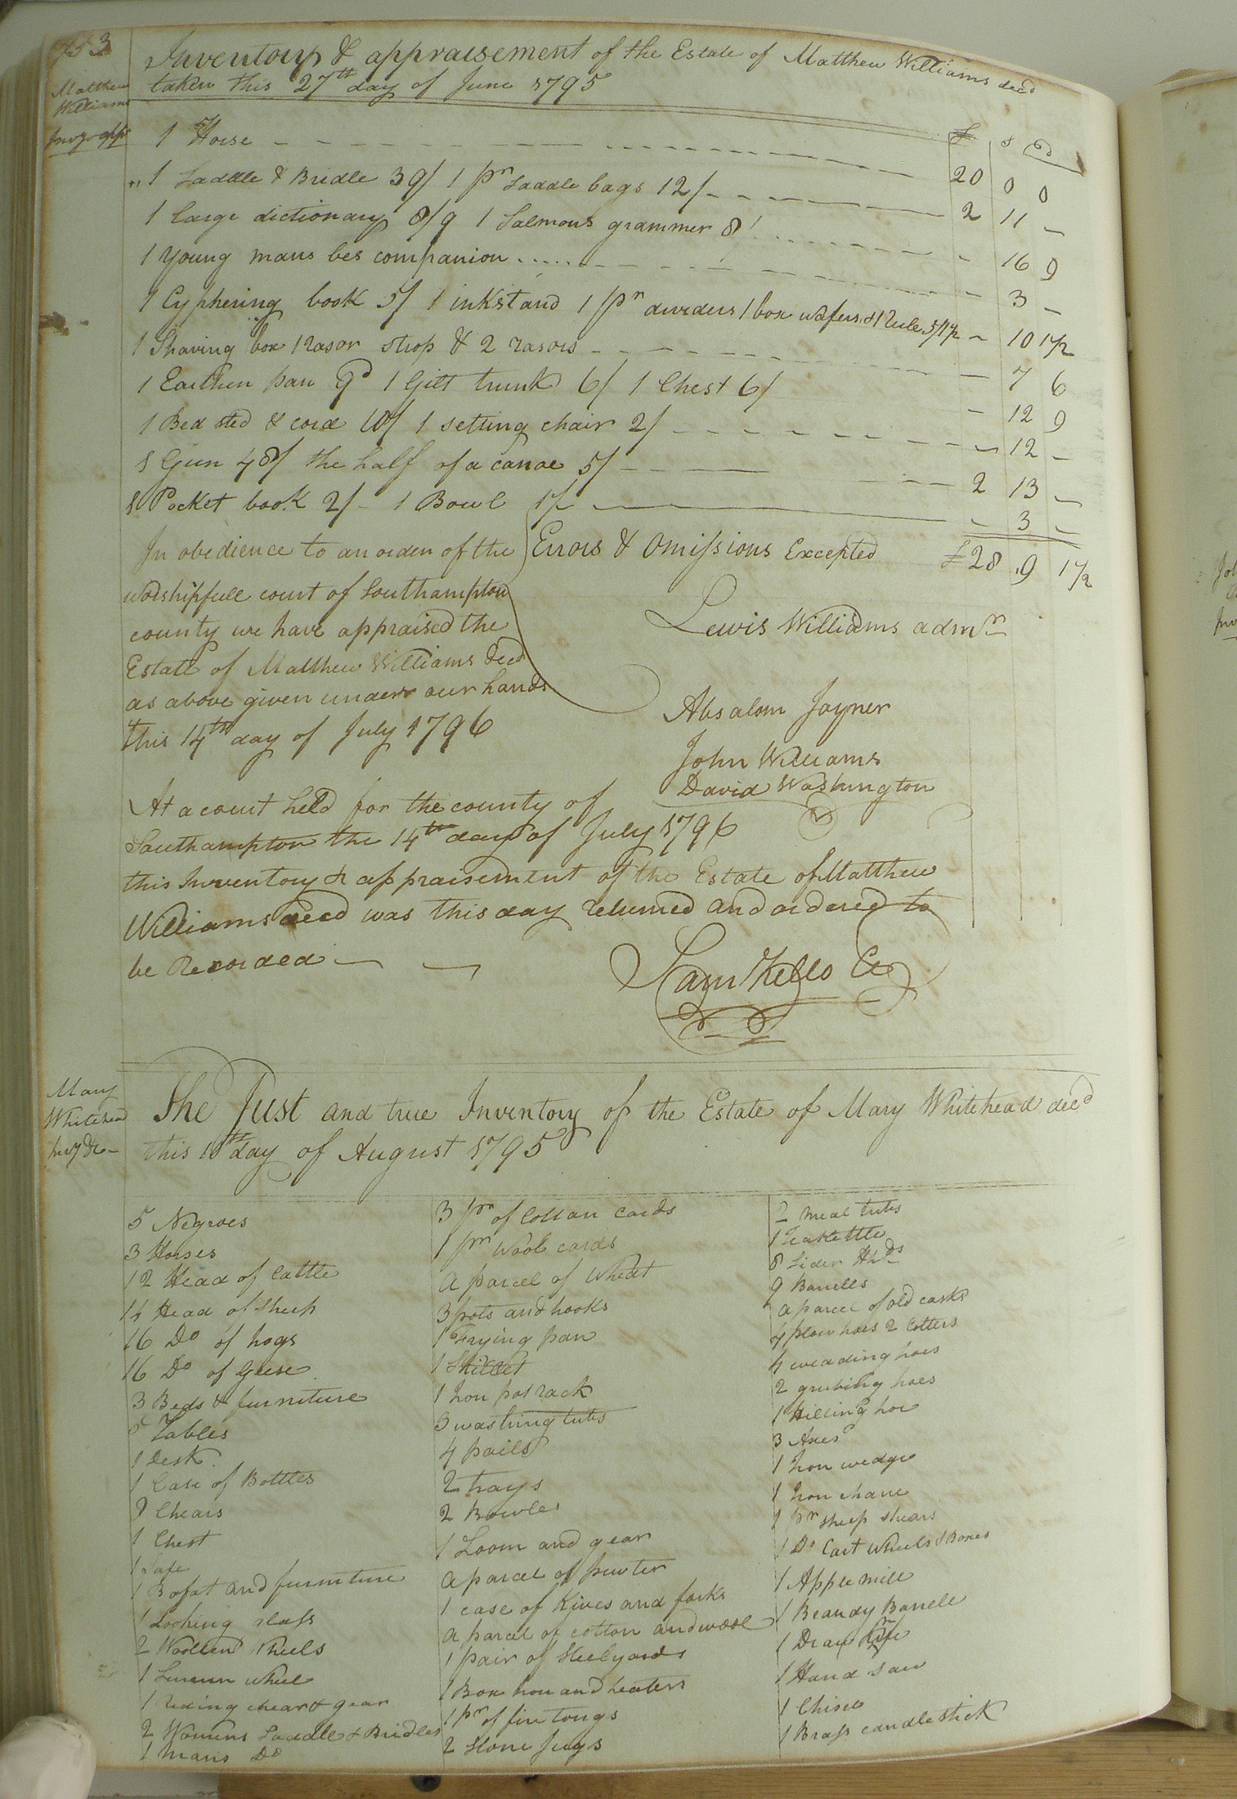 753
Matthew
Williams
Invy & appt
Inventory & appraisement of the Estate of Matthew Williams decd
taken this 27th day of June 1795
£ s d
1 Horse 20 0 0
1 Saddle & Bridle 39/ 1 pr Saddle bags 12/ 2 11 –
1 large dictionary 8/9 1 Salmons grammer 8/ 16 9
1 Young mans bes companion 3 –
1 Cyphering book 5/ 1 inkstand 1 pr deviders 1 box wafers & 1 Rule 5/1½ 10 1½
1 Shaving box 1 rasor strop & 2 rasors 7 6
1 Earthen pan 9d 1 Gilt trunk 6/ 1 Chest 6/ 12 9
1 Bed sted & cord 10/ 1 setting chair 2/ 12 –
1 Gun 48/ the half of a canoe 5/ 2 13 –
1 Pocket book 2/ 1 Bowl 1/ 3 –
Errors & Omissions Excepted £28 .9 1½
Lewis Williams admr
In obedience to an order of the
worshipfull court of Southampton
county we have appraised the
Estate of Matthew Williams decd
as above given under our hands
this 14th day of July 1796
Absalom Joyner
John Williams
David Washington
At a court held for the county of
Southampton the 14th day of July 1796
this Inventory & appraisement of the Estate of Matthew
Williams decd was this day returned and ordered to
be Recorded
Saml Kello Cc
Mary
Whitehead
Invy &c
The Just and true Inventory of the Estate of Mary Whitehead decd
this 10th day of August 1795
5 Negroes
3 Horses
12 Head of Cattle
14 Head of Sheep
16 Do of hogs
16 Do of geese
3 Beds & furniture
Tables
1 Desk
1 Case of Bottles
Chears
1 Chest
1 Safe
1 Bofat and furniture
1 Looking glass
2 Woollen Wheels
1 Linnen wheel
1 riding chear & gear
2 Womens Saddle & Bridles
1 mans Do
3 pr of Cottan cards
1 pr Wool cards
a parcel of Wheat
3 pots and hooks
1 Frying pan
1 Skillet
1 Iron pot rack
3 washing tubs
4 pails
2 trays
2 Bowles
1 Loom and gear
a parcel of pewter
1 case of Kives and forks
a parcel of cotton and wool
1 pair of Steelyards
1 Box Iron and heaters
1 pr of fire tongs
2 Stone Jugs
2 meal tubs
1 Teakettle
8 Sider Hhds
9 Barrells
a parcel of old casks
4 plow hoes 2 Cotters
4 weading hoes
2 grubing hoes
1 Hilling hoe
3 Axes
1 Iron wedge
1 Iron chane
1 pr sheep shears
1 Do Cart Wheels & Boxes
1 Apple mill
1 Brandy Barrell
1 Draw Knife
1 Hand Saw
1 Chisel
1 Brass candlestick